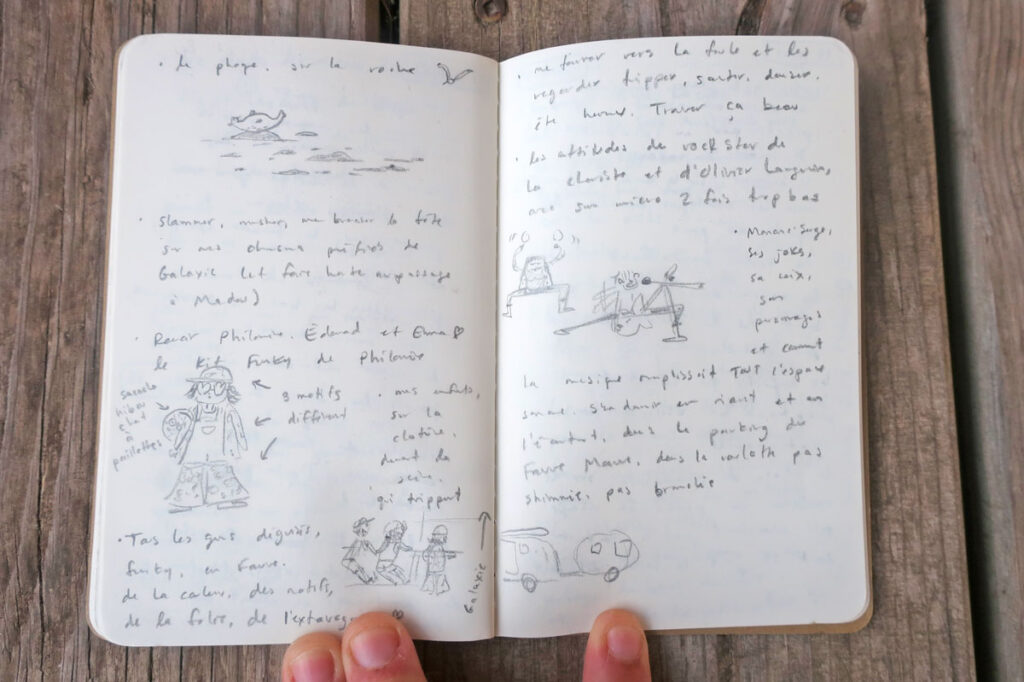 • Le phoque, sur la roche
• Slammer, musher, me brasser la tête
sur mes chansons préférés de
Galaxie (et faire haute au passage
à Madou)
• Revoir Philomène, Édouard et Emma ♡
le kit funky de Philomène
sacoche
hibou
chat
à
paillettes
3 motifs
différent
• mes enfants,
sur la
clotûre,
devant la
scène,
qui trippent
• Tous les gens déguisés,
funky, en Fauve.
de la couleur, des motifs,
de la folie, de l'extravag
Galaxie
• me tourner vers la foule et les
regarder tripper, sauter, danser,
être heureux. Trouver ça beau
• Les attitudes de rockstar de
la claviste et d'Olivier Langevin,
avec son micro 2 fois trop bas
• 
ses jokes,
sa voix,
son
personnage
et comment
la musique remplissait TOUT l'espace
sonore. S'endormir en riant et en
l'écoutant, dans le parking du
Fauve Mauve, dans la roulotte pas
shimmée, pas branchée